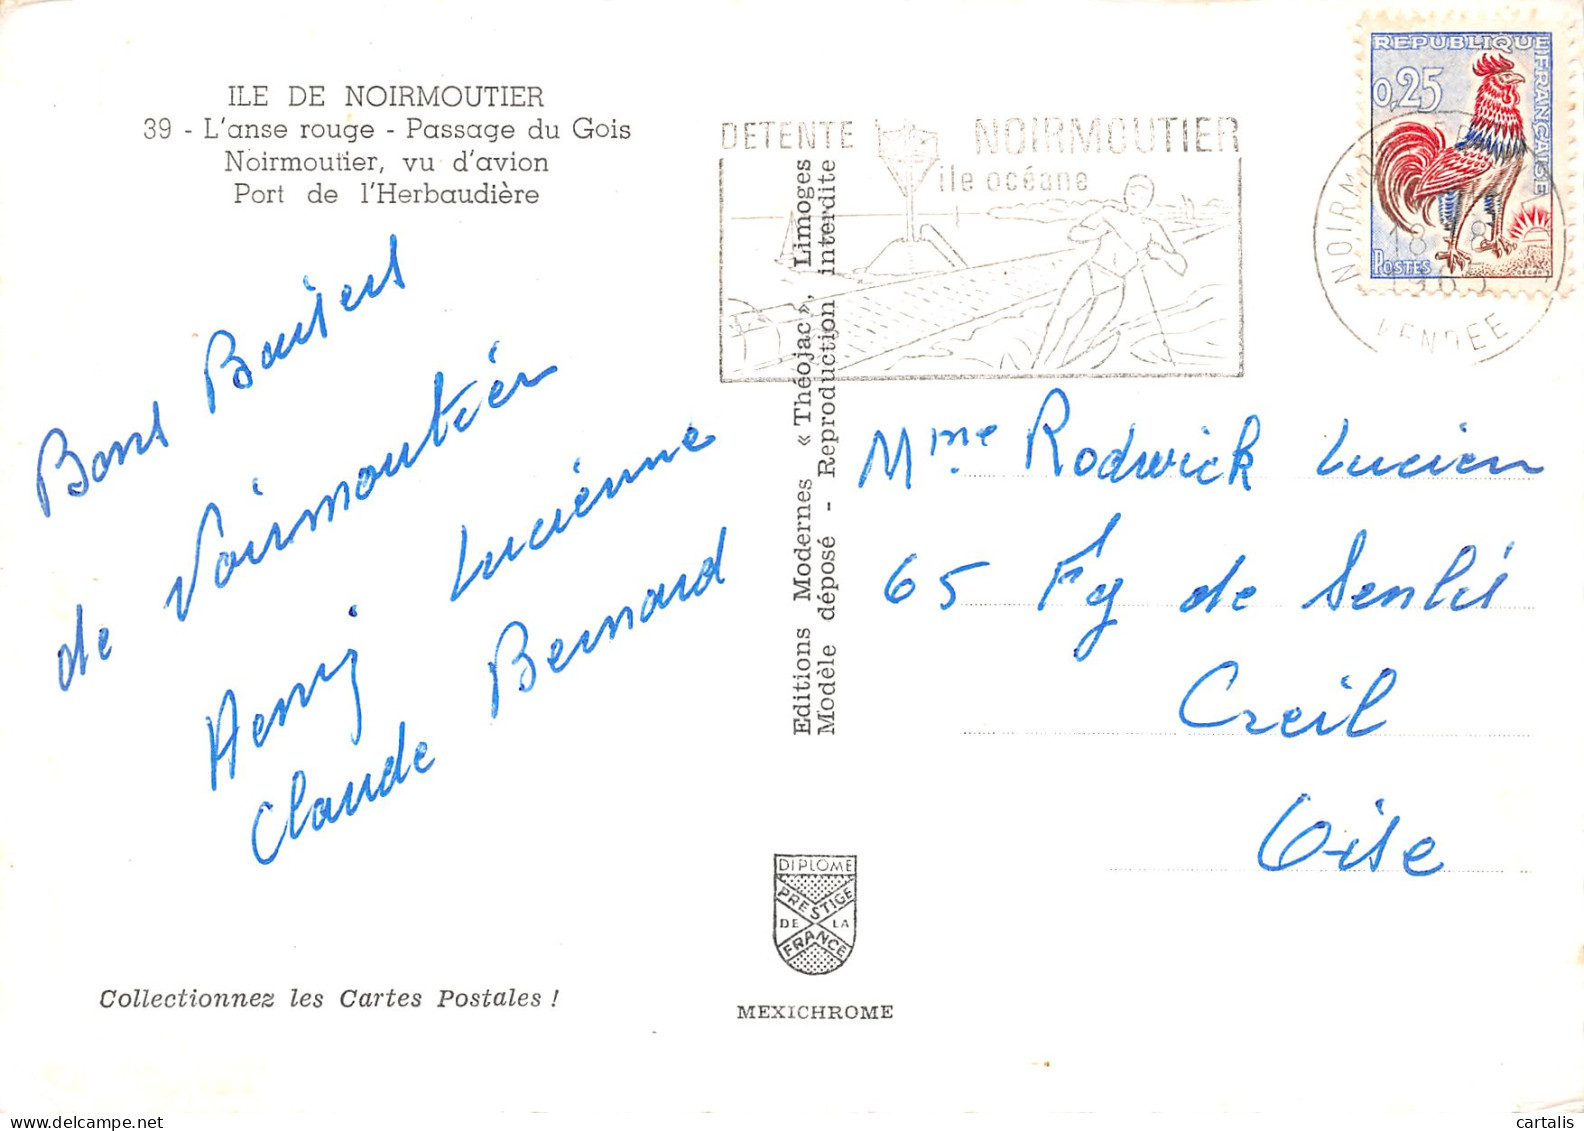 ILE DE NOIRMOUTIER
39 - L'anse rouge - Passage du Gois
Noirmoutier, vu d'avion
Port de l'Herbaudière
Bons Baisers
de Noirmoutier
Henri Lucienne
Claude Bernard
Collectionnez les Cartes Postales !
Editions Modernes « Théojac », Limoges
Modèle déposé - Reproduction interdite
DIPLOME
PRESTIGE
DE LA
FRANCE
MEXICHROME
DETENTE NOIRMOUTIER
ile océane
REPUBLIQUE FRANÇAISE
0,25
POSTES
NOIRMO
18 - 8
VENDEE
Mme Rodwick Lucien
65 Fg de Senlis
Creil
Oise
cartalis